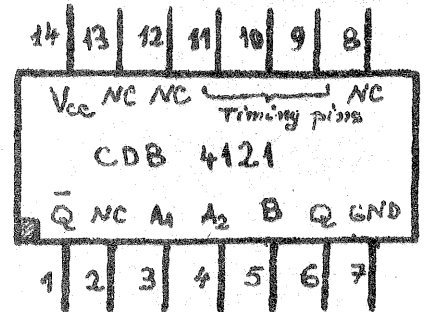 14 13 12 11 10 9 8
Vcc NC NC NC
Timing pins
CDB 4121
Q̅ NC A1 A2 B Q GND
1 2 3 4 5 6 7